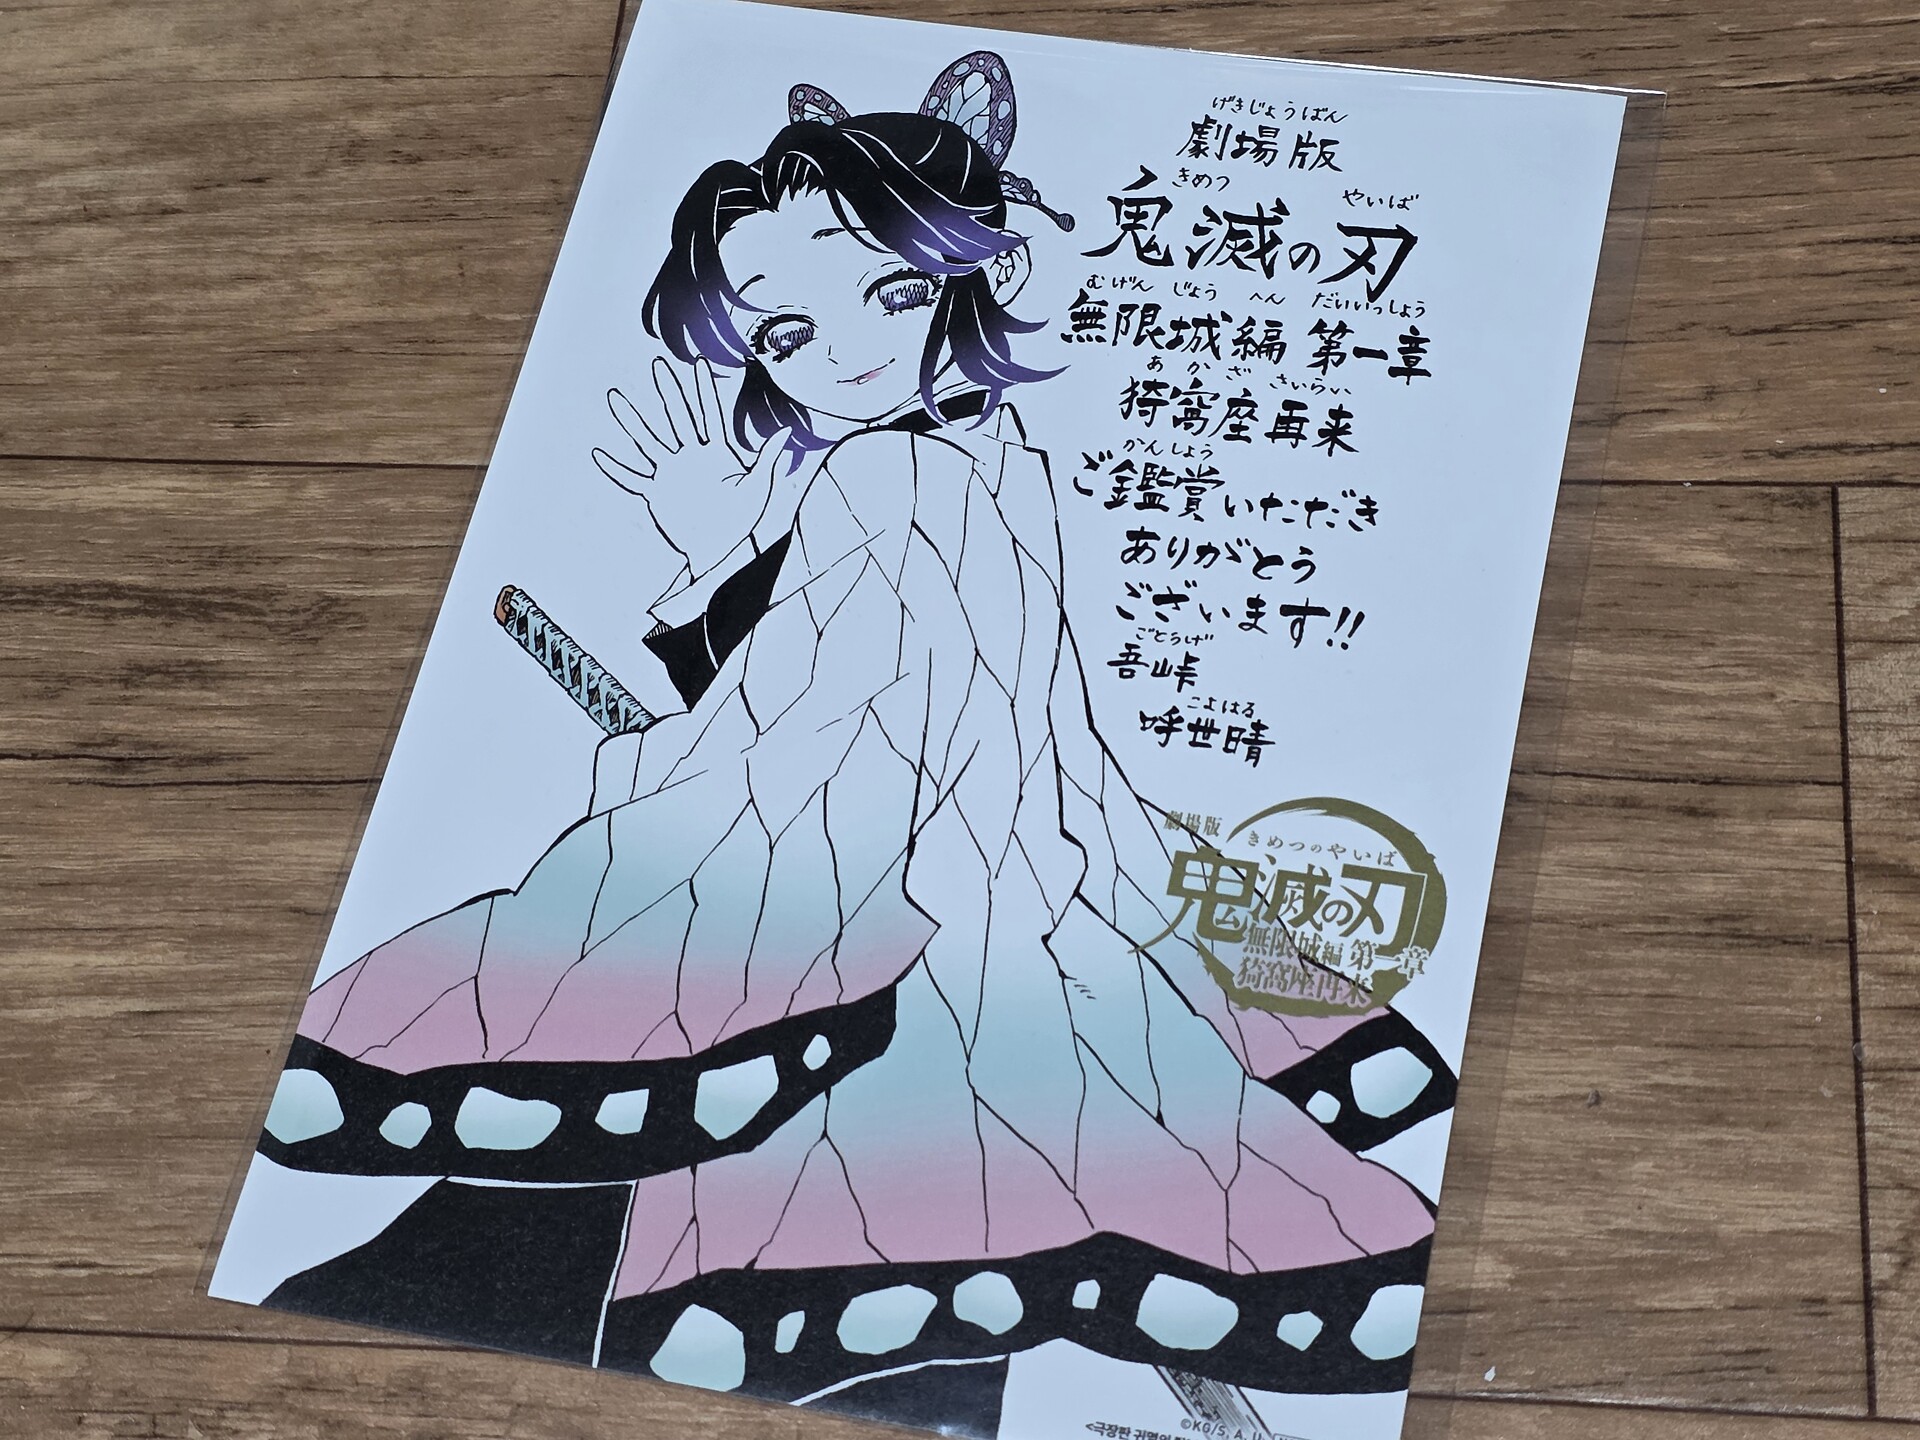 げきじょうばん
劇場版
きめつ やいば
鬼滅の刃
むげんじょうへん だいいっしょう
無限城編 第一章
あかざ さいらい
猗窩座再来
かんしょう
ご鑑賞いただき
ありがとう
ございます!!
ごとうげ
吾峠
こよはる
呼世晴
劇場版
きめつのやいば
鬼滅の刃
無限城編 第一章
猗窩座再来
©KG/S, A, U
<극장판 귀멸의